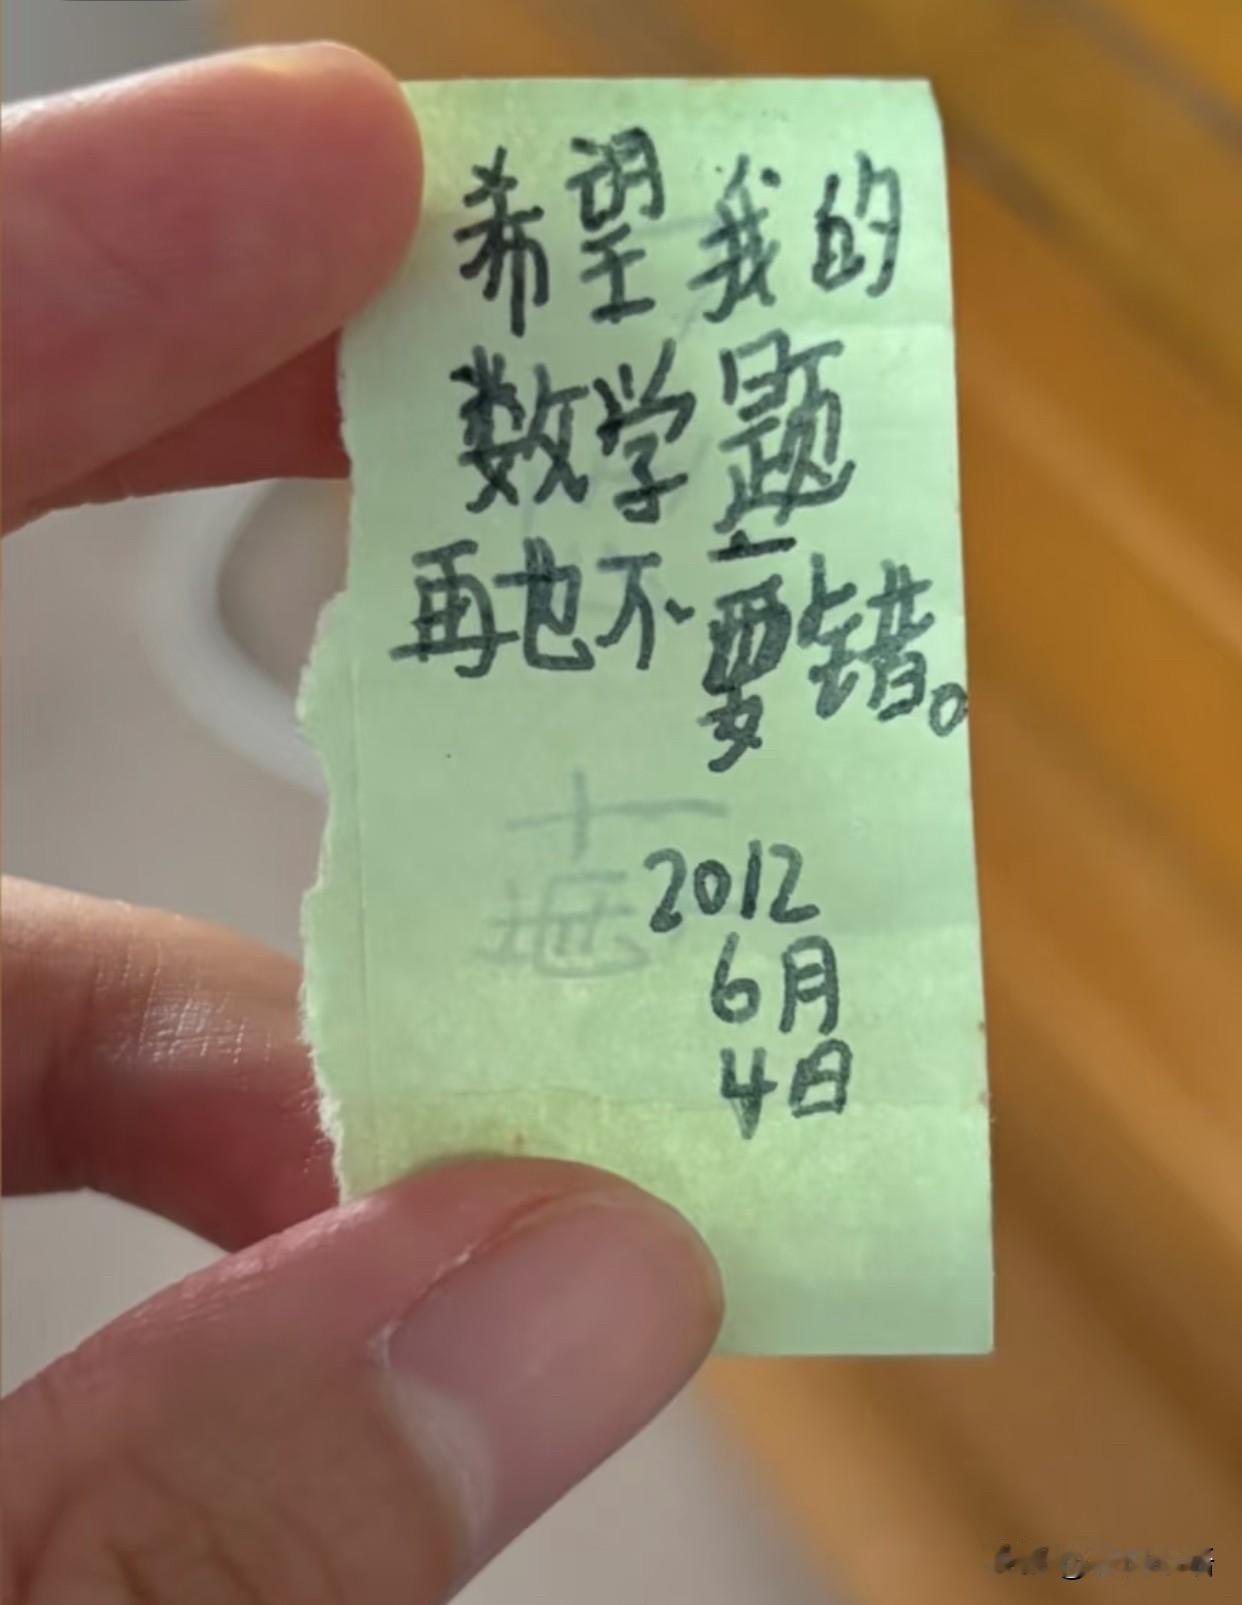 希望我的
数学题
再也不要错。
2012
6月
4日